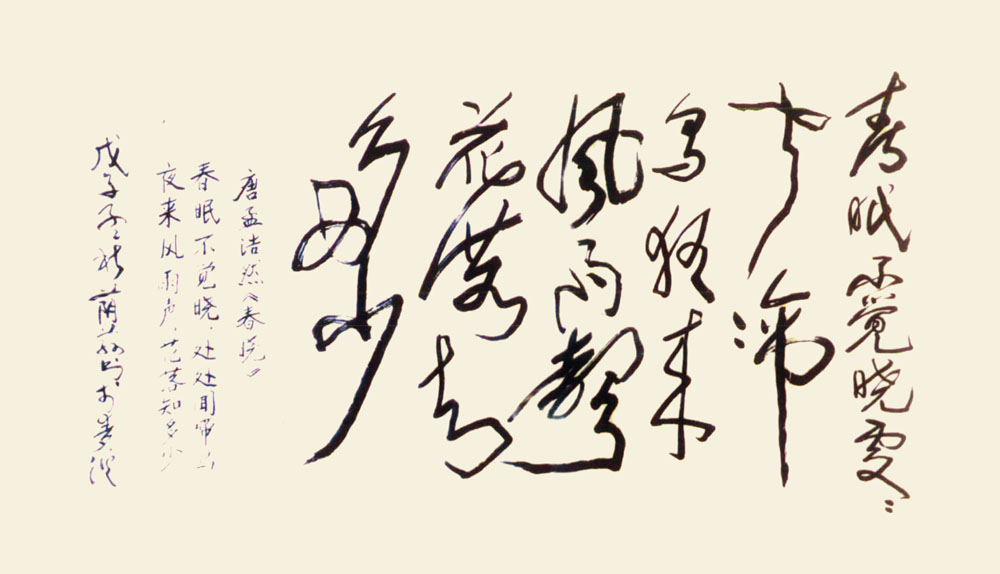 春眠不觉晓处〻
闻啼
鸟夜来
風雨聲
花落知
多少
唐孟浩然《春晓》
春眠不觉晓，处处闻啼鸟
夜来风雨声，花落知多少
戊子